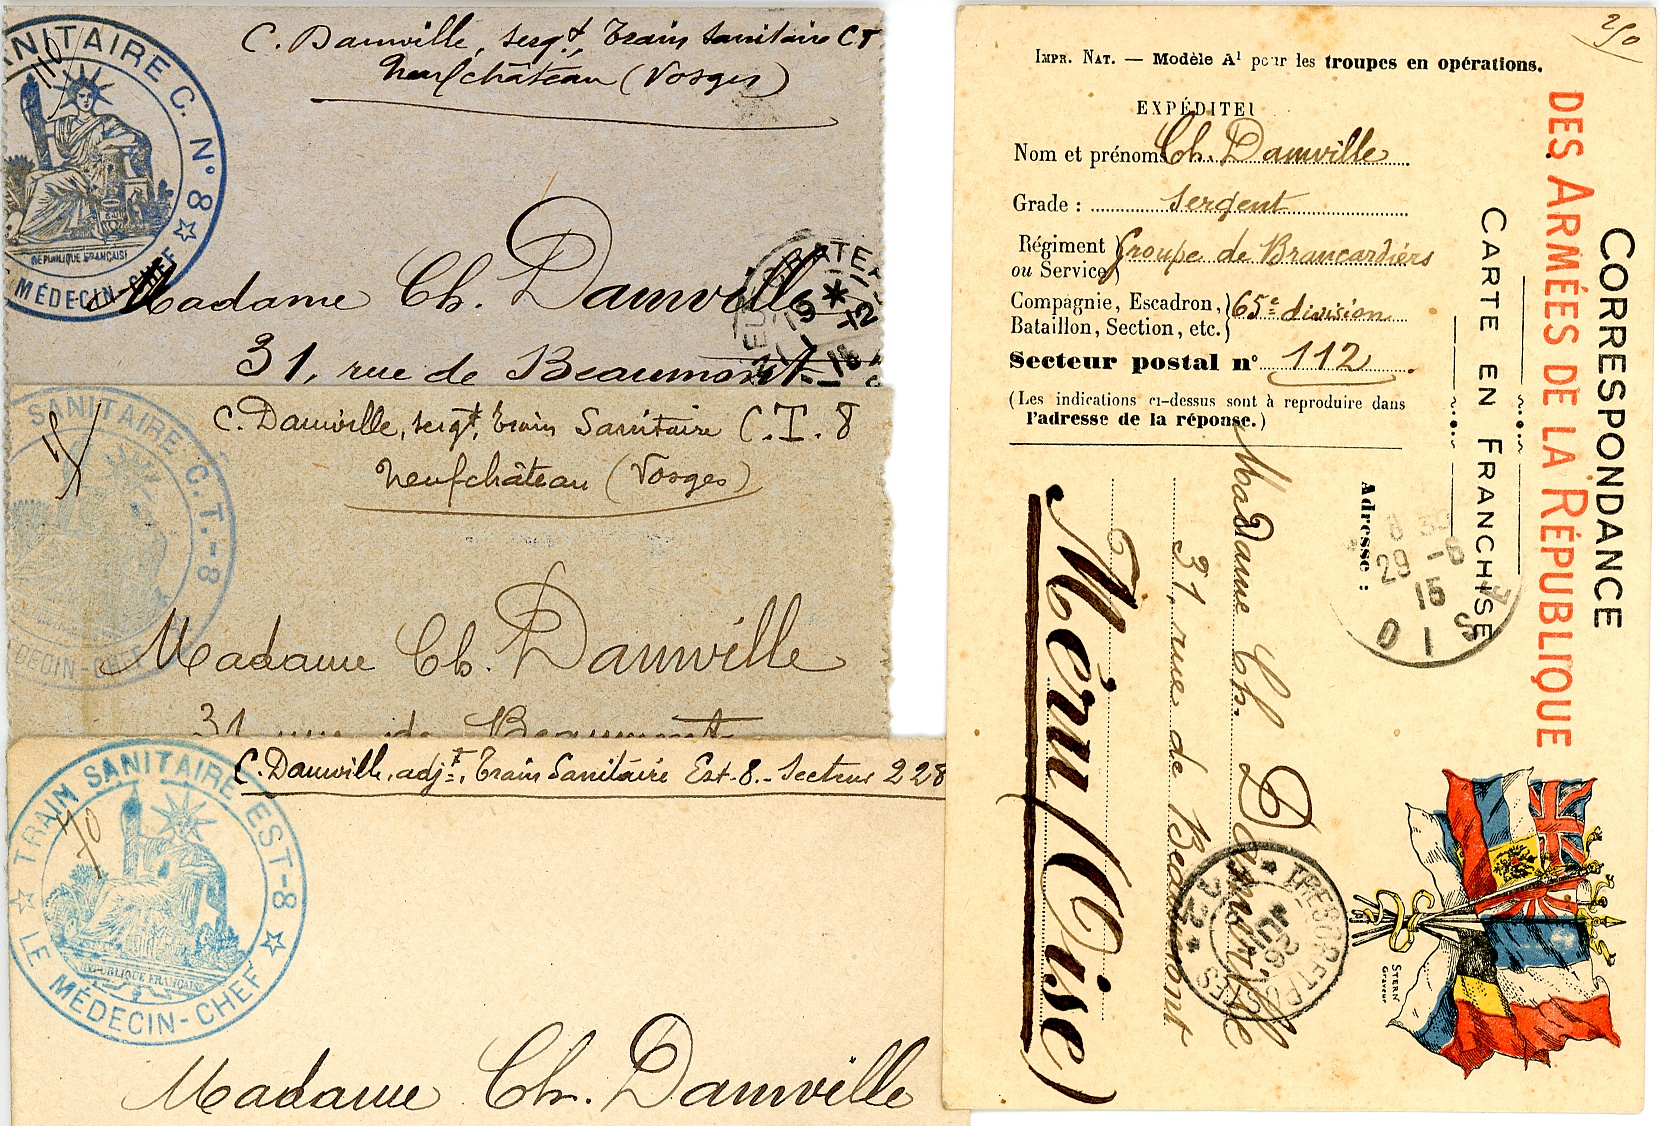 SANITAIRE C. N° 8
MÉDECIN-CHEF
RÉPUBLIQUE FRANÇAISE
C. Damville, sergt, Train Sanitaire C T
Neufchâteau (Vosges)
Madame Ch. Damville
31, rue de Beaumont
19 * -12
15
SANITAIRE C.T.-8
DECIN-CHEF
C. Damville, sergt, Train Sanitaire C.T. 8
Neufchâteau (Vosges)
Madame Ch. Damville
31 rue de Beaumont
TRAIN SANITAIRE EST-8
LE MÉDECIN-CHEF
RÉPUBLIQUE FRANÇAISE
70
C. Damville, adjt, Train Sanitaire Est-8. - Secteur 228
Madame Ch. Damville
IMPR. NAT. — Modèle A1 pour les troupes en opérations.
EXPÉDITEU
Nom et prénoms Ch. Damville
Grade : sergent
Régiment ou Service } Groupe de Brancardiers
Compagnie, Escadron, Bataillon, Section, etc. } 65e division
Secteur postal n° 112
(Les indications ci-dessus sont à reproduire dans
l'adresse de la réponse.)
CORRESPONDANCE
DES ARMÉES DE LA RÉPUBLIQUE
CARTE EN FRANCHISE
Adresse :
Madame Ch. Damville
31, rue de Beaumont
Méru (Oise)
8 30
29 -6
15
OISE
TRESOR ET POSTES
112
26
STERN
Graveur